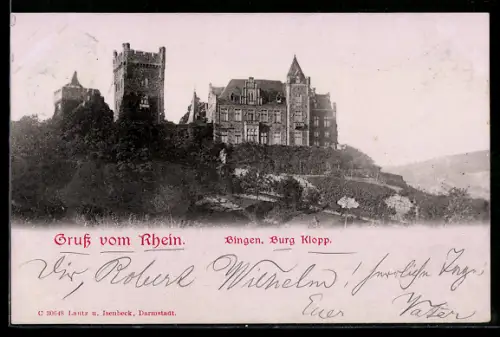 Gruß vom Rhein.
Bingen. Burg Klopp.
Dir, Robert Wilhelm! herrliche Tage!
Euer Vater
C 30648 Lautz u. Isenbeck, Darmstadt.